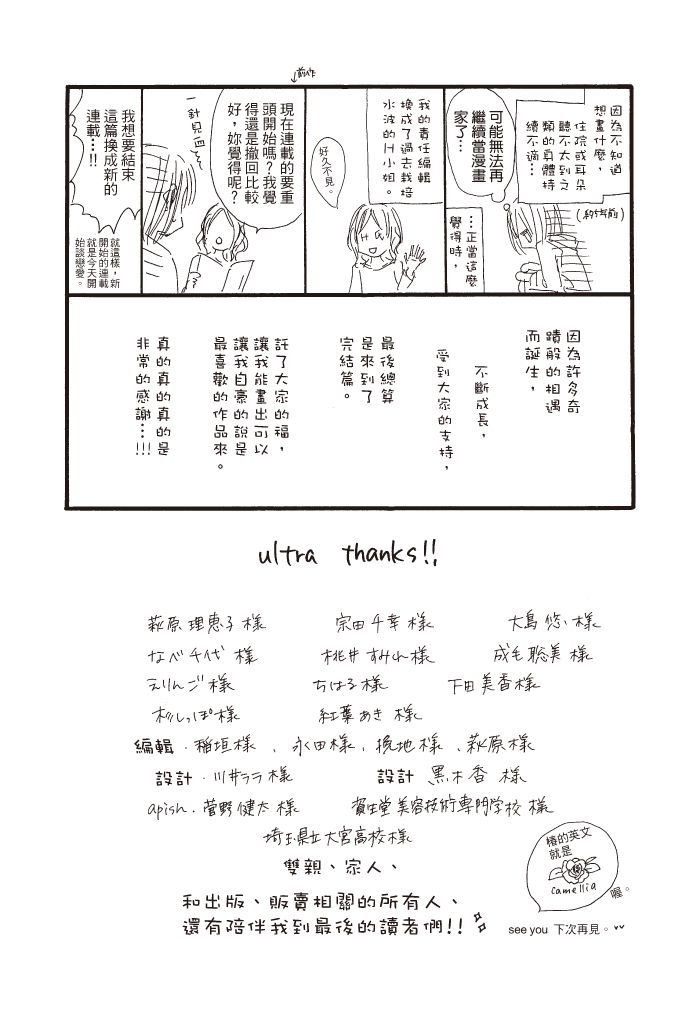 因為不知道
想畫什麼，
住院或耳朵
聽不大到之
類的真體持
續不適…
（約5年前）
可能無法再
繼續當漫畫
家了…
…正當這麼
覺得時，
我的責任編輯
換成了過去栽培
水波的H小姐。
好久不見。
H
←前作
現在連載的要重
頭開始嗎？我覺
得還是撤回比較
好，妳覺得呢？
一針見血
我想要結束
這篇換成新的
連載…!!
就這樣，新
開始的連載
就是今天開
始談戀愛。
因為許多奇
蹟般的相遇
而誕生，
不斷成長，
受到大家的支持，
最後總算
是來到了
完結篇。
託了大家的福，
讓我能畫出可以
讓我自豪的說是
最喜歡的作品來。
真的真的真的是
非常的感謝…!!!
ultra thanks!!
萩原理恵子様 宗田千幸様 大島悠い様
なべ千代様 桃井すみれ様 成毛聡美様
えりんご様 ちはる様 下田美香様
杉しっぽ様 紅葉あき様
編輯．稲垣様、永田様、後地様、萩原様
設計．川井ララ様 設計 黒木香様
apish．菅野健太様 資生堂美容技術専門学校様
埼玉県立大宮高校様
雙親、家人、
和出版、販賣相關的所有人、
還有陪伴我到最後的讀者們!!
椿的英文
就是
camellia
喔。
see you 下次再見。